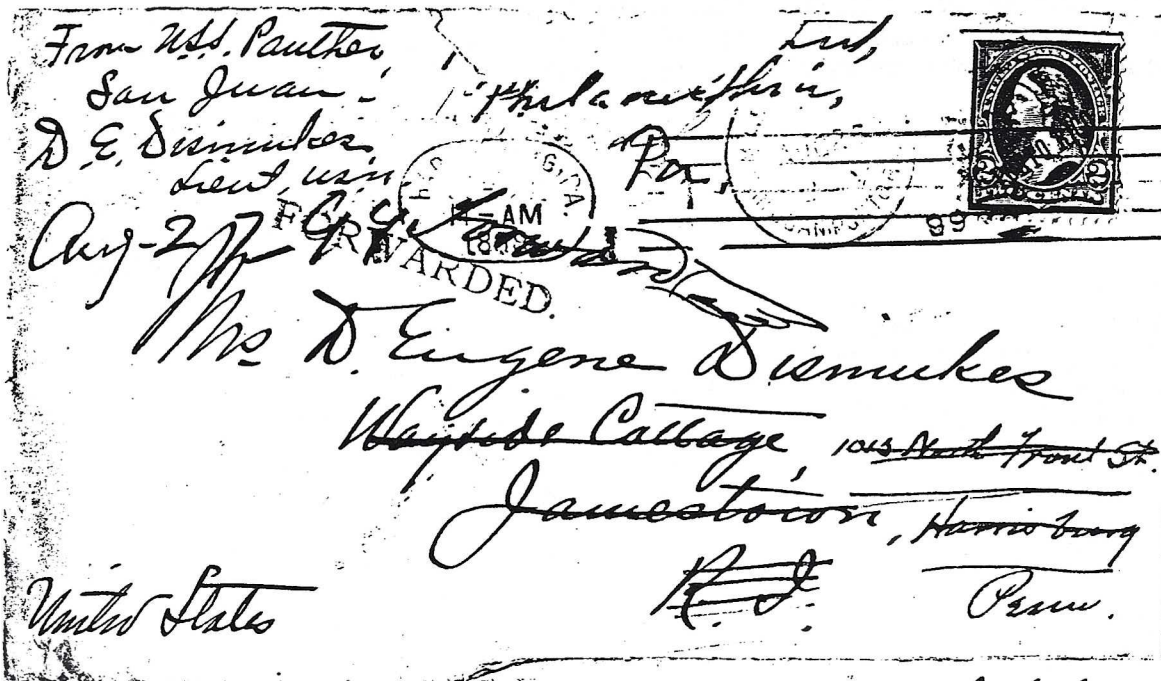 From U.S.S. Panther,
San Juan -
D. E. Dismukes,
Lieut, USN
Aug-2/99
Philadelphia,
Pa,
AM
1899
FORWARDED.
99
2 CENTS 2
Mrs D. Eugene Dismukes
Wayside Cottage, 1013 North Front St.
Jamestown, Harrisburg
R. I. Penn.
United States